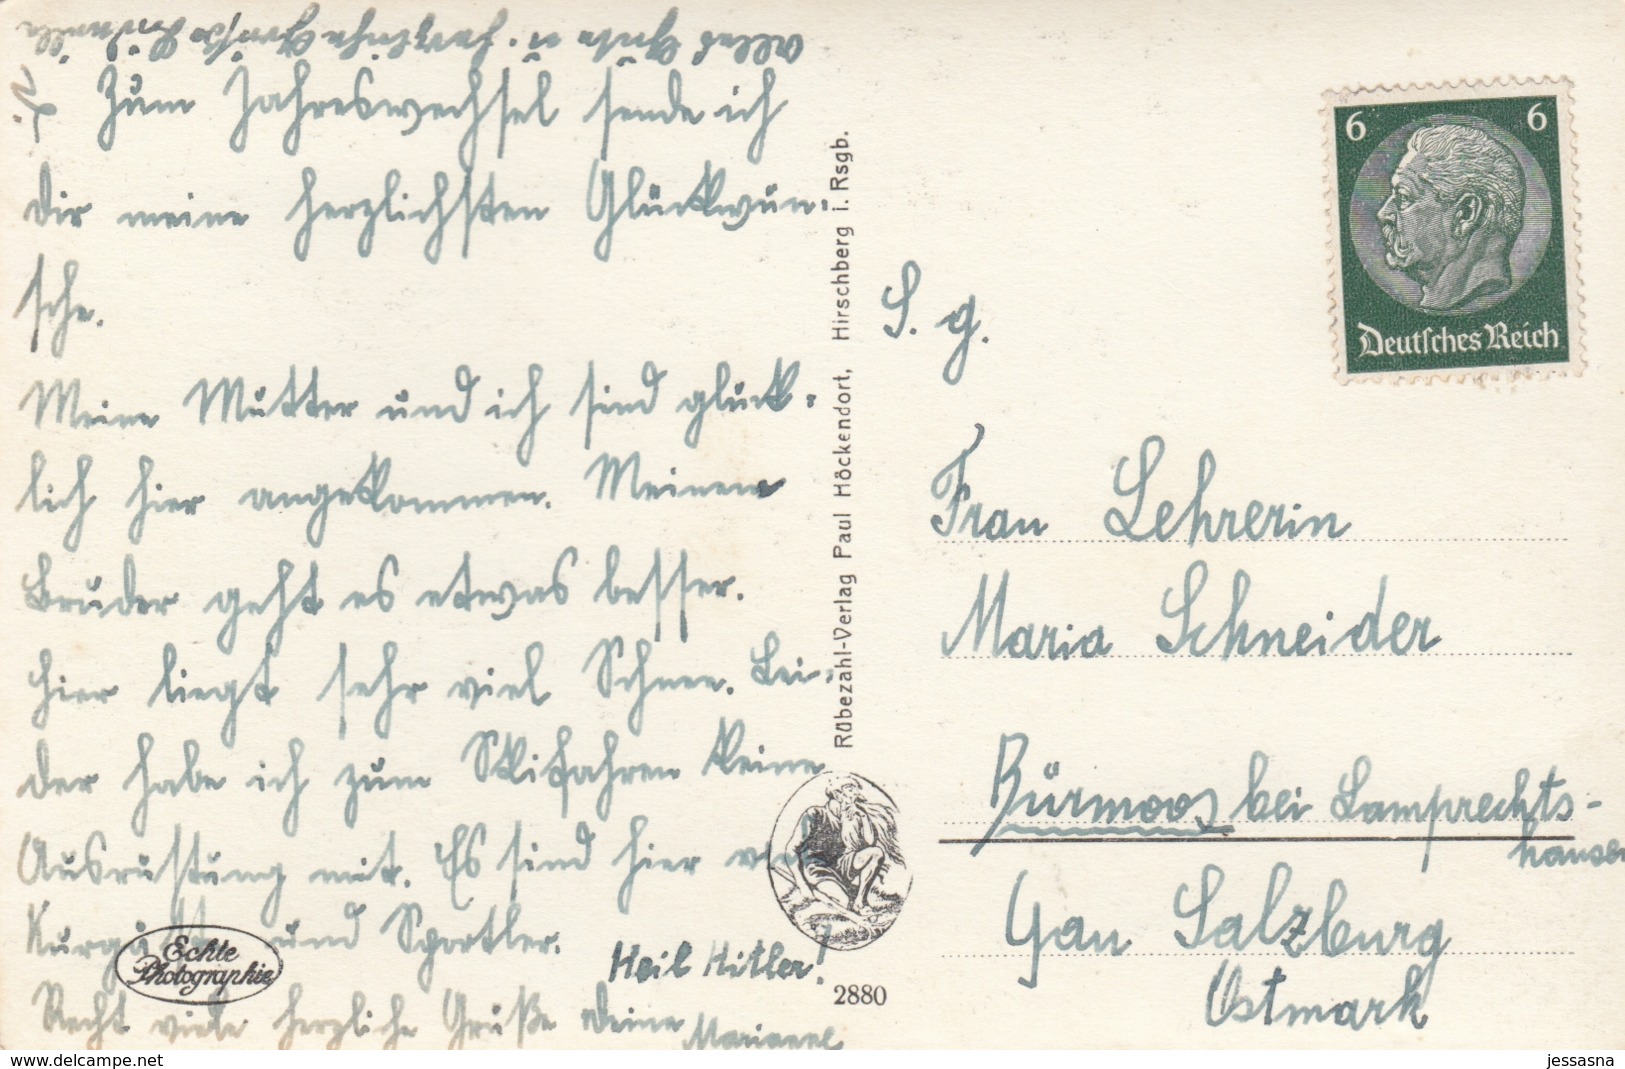 Alles Gute u. herzliche Grüße
Zum Jahreswechsel sende ich
Dir meine herzlichsten Glückwün-
sche.
Meine Mutter und ich sind glück-
lich hier angekommen. Meinem
Bruder geht es etwas besser.
Hier liegt sehr viel Schnee. Lei-
der habe ich zum Skifahren keine
Ausrüstung mit. Es sind hier viel
Kurgäste und Sportler. Heil Hitler!
Recht viele herzliche Grüße Deine
Echte
Photographie
Rübezahl-Verlag Paul Höckendort, Hirschberg i. Rsgb.
2880
6 6
Deutsches Reich
S. g.
Frau Lehrerin
Maria Schneider
Bürmoos bei Lamprechts-
hausen
Gau Salzburg
Ostmark
www.delcampe.net
jessasna